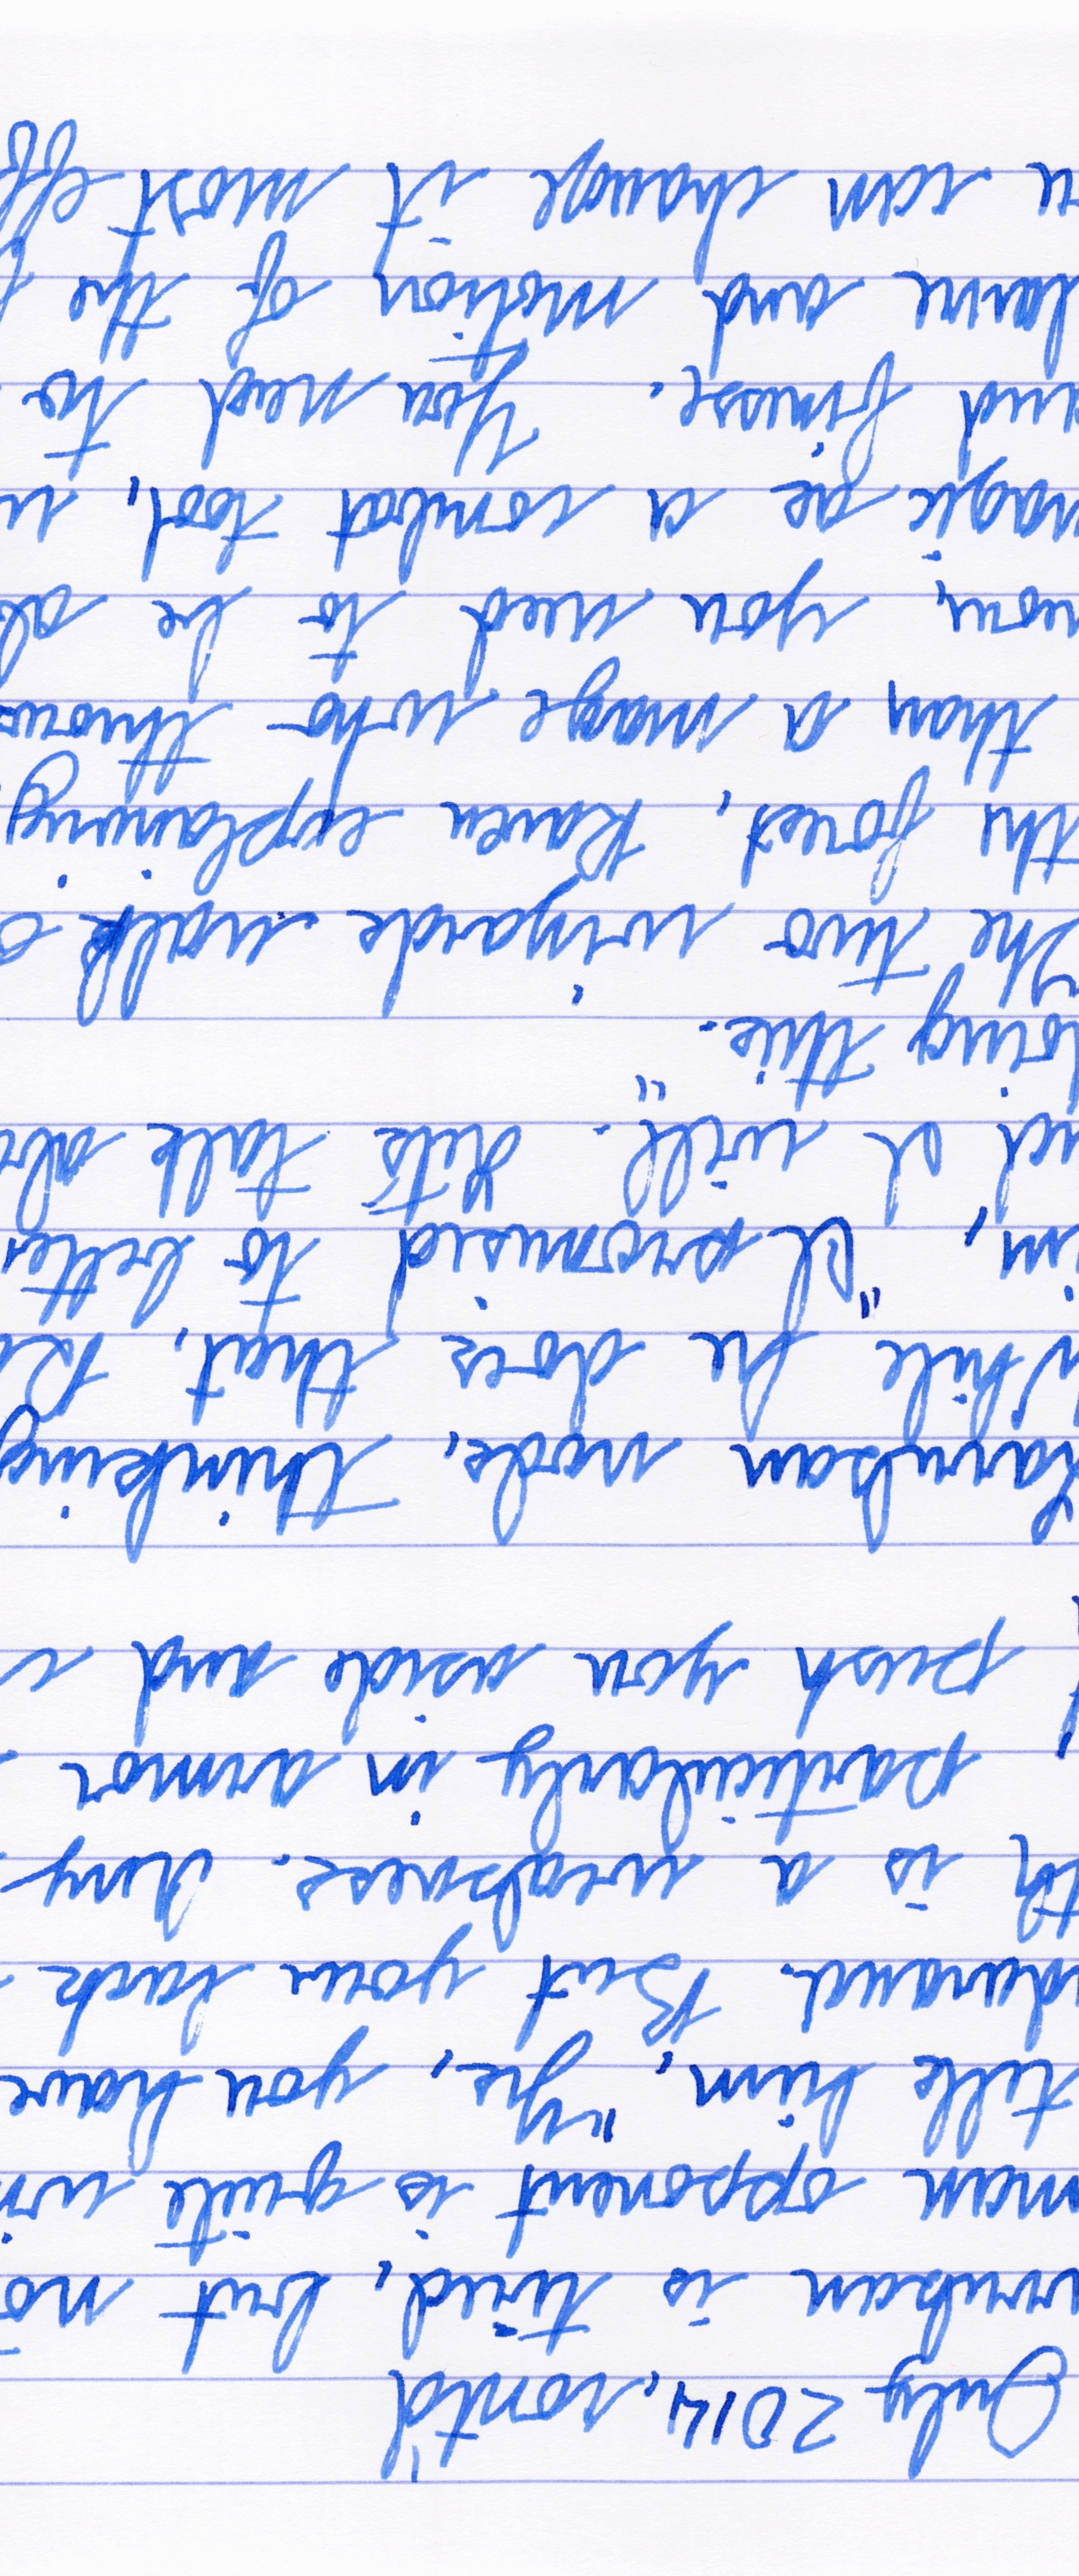 July 2014, cont'd
is tired, but no
man opponent is quite wi
tells him, "Yes, you have
durance. But your lack
th is a weakness. Any
, particularly in armor
push you aside and
nods, thinking
While he does that, Ra
im, "I promised to better
nd I will." Let's talk abo
oing this.
The two wizards walk
the forest, Raven explaining,
than a mage who throws
you need to be ab
magic as a combat tool, u
and finesse. You need to
lance and motion of the
u can change it most eff